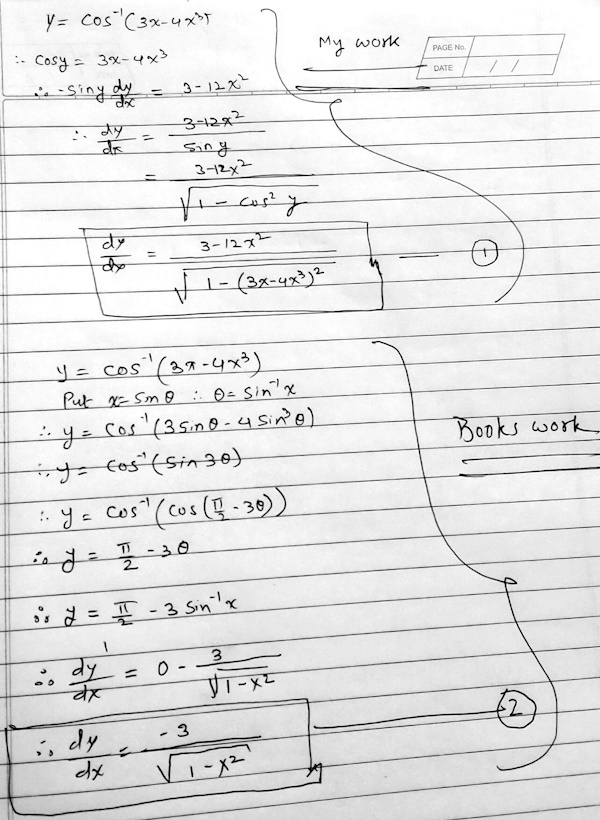 y = cos⁻¹(3x-4x³)
My work
PAGE No.
DATE / /
∴ cosy = 3x-4x³
∴ -siny dy/dx = 3-12x²
∴ dy/dx = 3-12x²/sin y
= 3-12x²/√(1 - cos² y)
dy/dx = 3-12x²/√(1-(3x-4x³)²) — ①
y = cos⁻¹(3x-4x³)
Put x=sinθ ∴ θ= sin⁻¹x
∴ y = cos⁻¹(3sinθ-4sin³θ)
Books work
∴ y = cos⁻¹(sin3θ)
∴ y = cos⁻¹(cos(π/2-3θ))
∴ y = π/2 - 3θ
∴ y = π/2 - 3 sin⁻¹x
∴ dy/dx = 0 - 3/√(1-x²)
∴ dy/dx = -3/√(1-x²) — ②